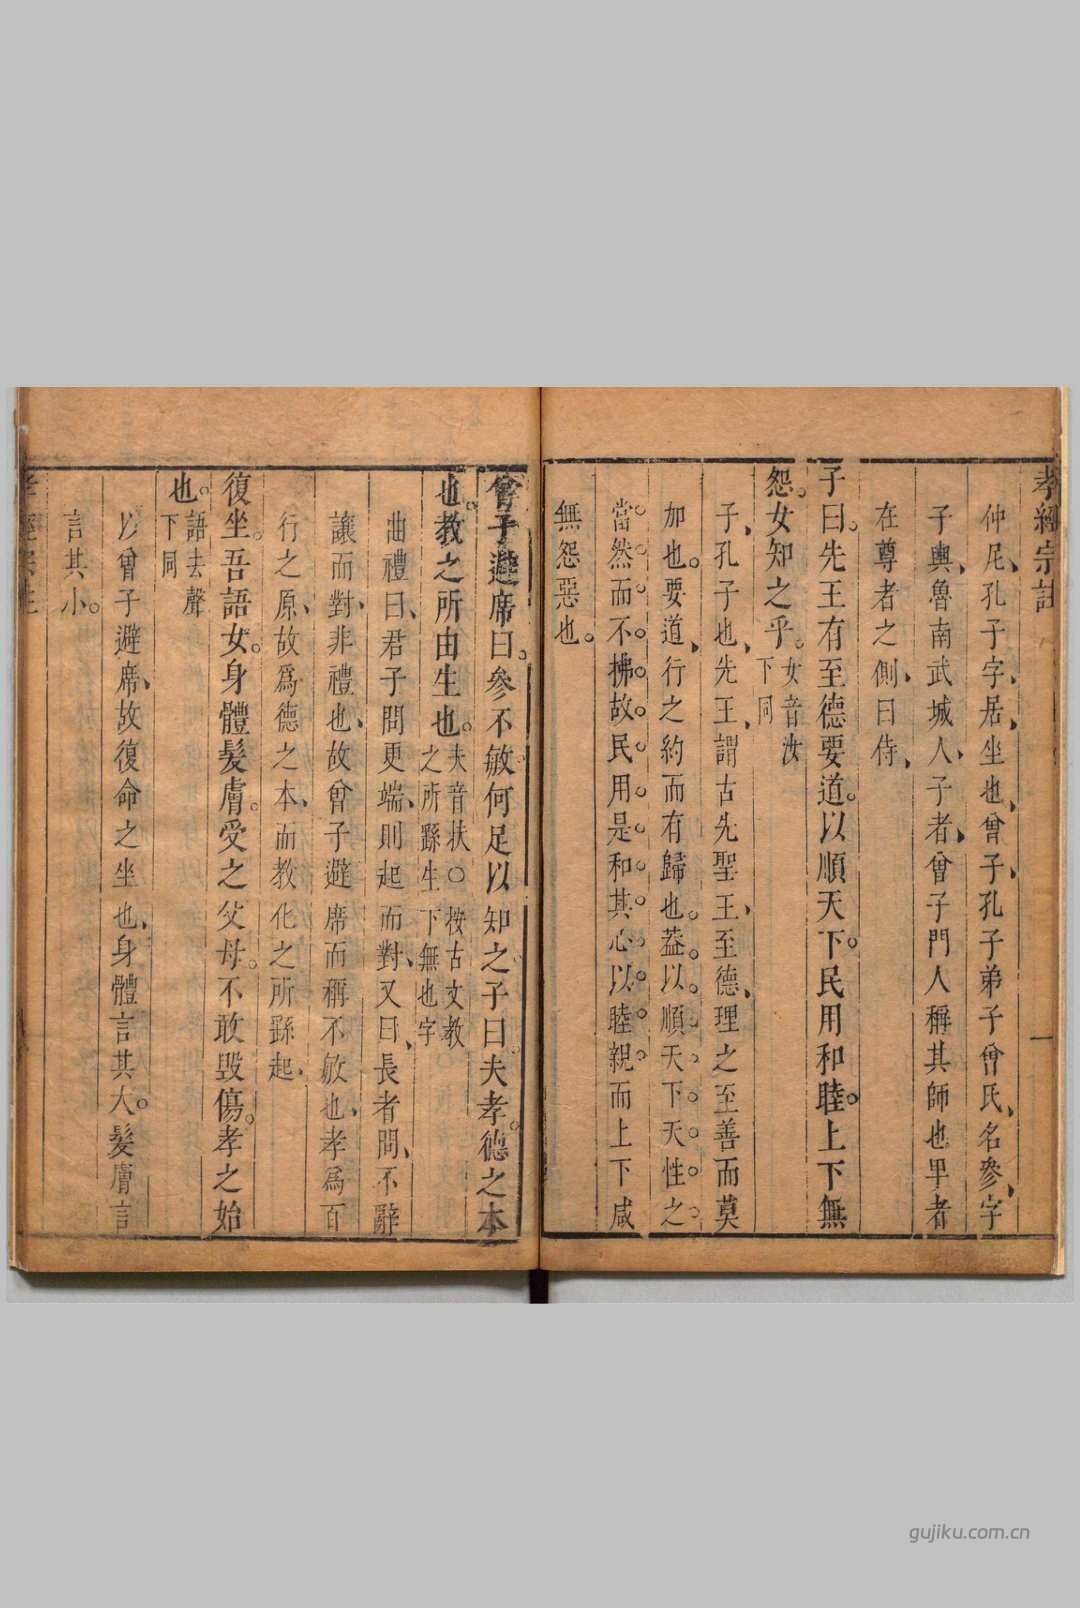 孝經宗註
一
仲尼、孔子字、居、坐也、曾子、孔子弟子曾氏、名參、字
子輿、魯南武城人、子者、曾子門人稱其師也卑者
在尊者之側、曰侍、
子曰。先王有至德要道。以順天下。民用和睦。上下無
怨。女知之乎。女音汝下同
子、孔子也、先王、謂古先聖王、至德、理之至善而莫
加也。要道、行之約而有歸也。葢以順天下。天性之
當然而不拂。故民用是和其心以睦親而上下咸
無怨惡也。
曾子避席曰。參不敏。何足以知之。子曰。夫孝。德之本
也。教之所由生也。夫音扶○按古文教之所繇生下無也字
曲禮曰、君子問更端、則起而對、又曰、長者問、不辭
讓而對、非禮也、故曾子避席而稱不敏也、孝爲百
行之原、故爲德之本、而教化之所繇起、
復坐。吾語女。身體髮膚。受之父母。不敢毀傷。孝之始
也。語去聲下同
以曾子避席、故復命之坐也、身體言其大。髮膚言
言其小。